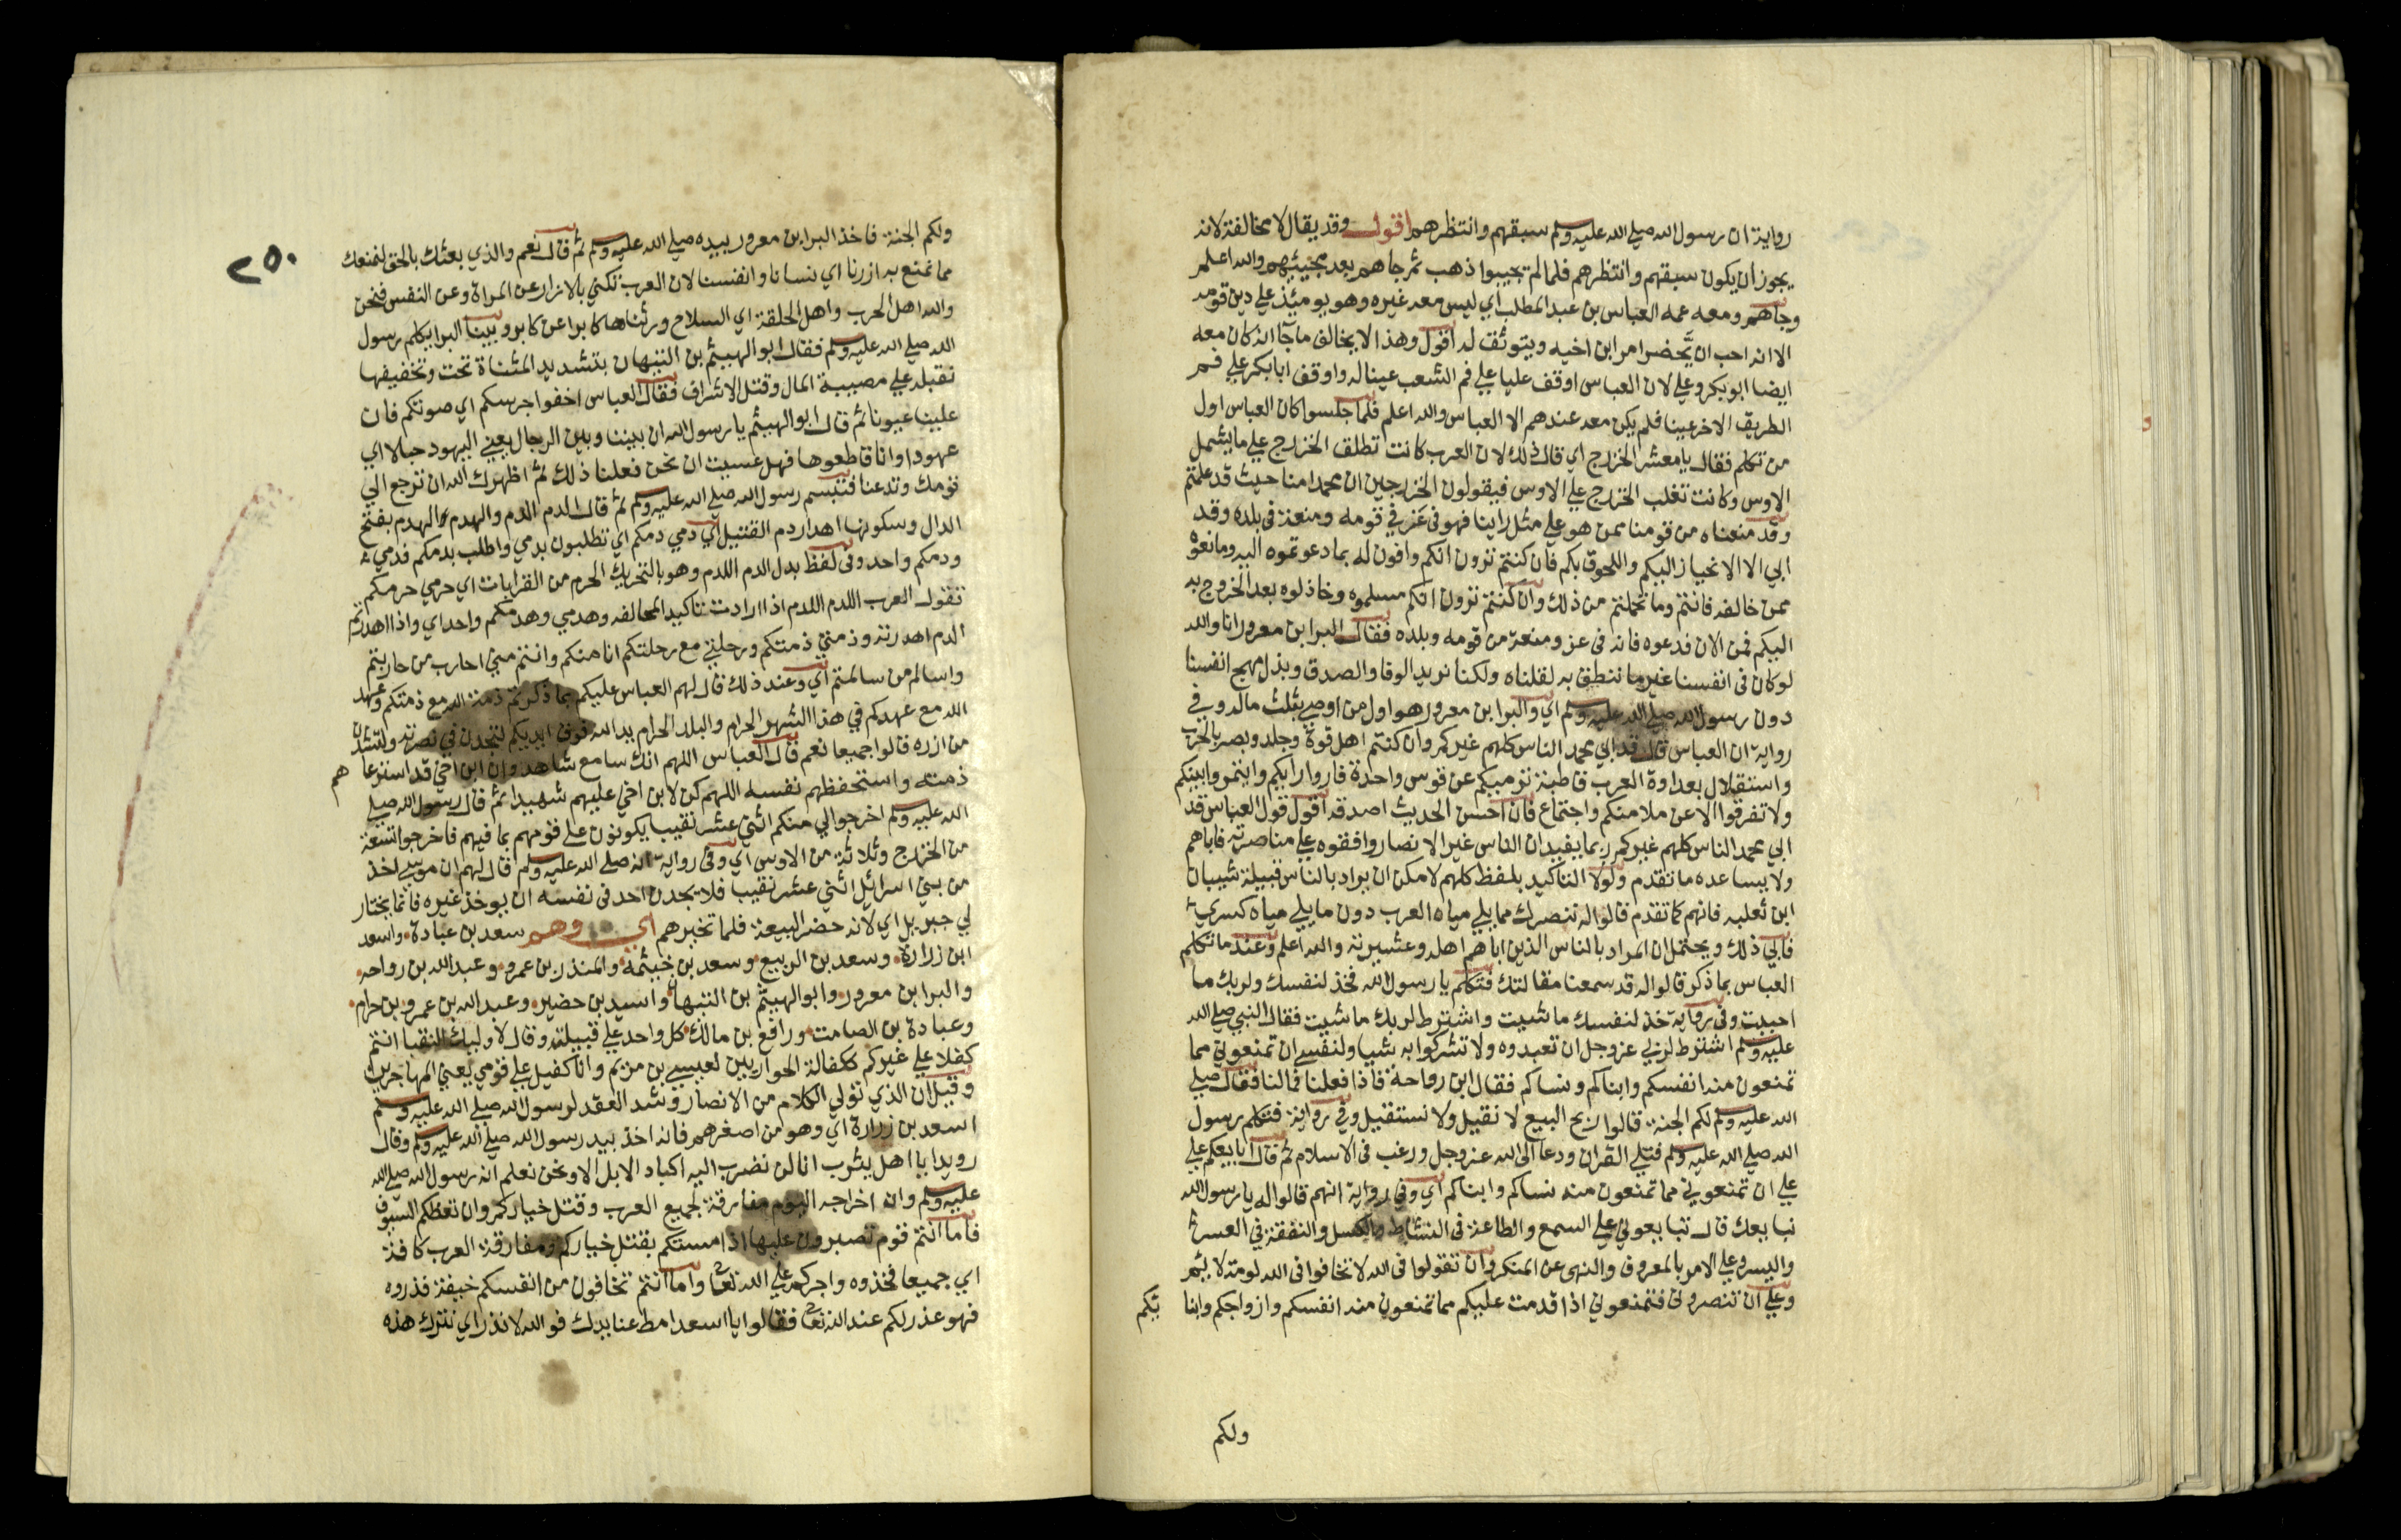 رواية ان رسول الله صلي الله عليه وسلم سبقهم وانتظرهم اقول وقد يقال لا مخالفة لانه
يجوز ان يكون سبقهم وانتظرهم فلما لم يجيبوا ذهب ثم جاهم بعد مجيئهم والله اعلم
وجاهم ومعه عمه العباس بن عبد المطلب اي ليس معه غيره وهو يومئذ علي دين قومه
الا انه احب ان يحضر امر ابن اخيه ويتوثق له اقول وهذا لا يخالف ما جآ انه كان معه
ايضا ابو بكر وعلي لان العباس اوقف عليا علي فم الشعب عينا له واوقف ابا بكر علي فم
الطريق الاخر عينا فلم يكن معه عندهم الا العباس والله اعلم فلما جلسوا كان العباس اول
من تكلم فقال يا معشر الخزرج اي قال ذلك لان العرب كانت تطلق الخزرج علي ما يشمل
الاوس وكانت تغلب الخزرج علي الاوس فيقولون الخزرجين ان محمدا منا حيث قد علمتم
وقد منعناه من قومنا ممن هو علي مثل راينا فهو في عز في قومه ومنعة في بلده وقد
ابي الا الانحياز اليكم واللحوق بكم فان كنتم ترون انكم وافون له بما دعوتموه اليه ومانعوه
ممن خالفه فانتم وما تحملتم من ذلك وان كنتم ترون انكم مسلموه وخاذلوه بعد الخروج به
اليكم فمن الان فدعوه فانه في عز ومنعة من قومه وبلده فقال البرا بن معرور انا والله
لو كان في انفسنا غير ما ننطق به لقلناه ولكنا نريد الوفا والصدق وبذل مهج انفسنا
دون رسول الله صلي الله عليه وسلم اي والبرا بن معرور هو اول من اوصي بثلث ماله وفي
رواية ان العباس قال قد ابي محمد الناس كلهم غيركم وان كنتم اهل قوة وجلد وبصر بالحرب
واستقلال بعداوة العرب قاطبة ترميكم عن قوس واحدة فاروا رايكم وايتمروا بينكم
ولا تفرقوا الا عن ملا منكم واجتماع فان احسن الحديث اصدقه اقول قول العباس قد
ابي محمد الناس كلهم غيركم ربما يفيد ان الناس غير الانصار وافقوه علي مناصرته فاباهم
ولا يساعده ما تقدم ولولا التاكيد بلفظ كلهم لامكن ان يراد بالناس قبيلة شيبان
ابن ثعلبه فانهم كما تقدم قالوا له ننصرك مما يلي مياه العرب دون ما يلي مياه كسري
فابي ذلك ويحتمل ان المراد بالناس الذين اباهم اهله وعشيرته والله اعلم وعند ما تكلم
العباس بما ذكر قالوا له قد سمعنا مقالتك فتكلم يا رسول الله فخذ لنفسك ولربك ما
احببت وفي رواية خذ لنفسك ما شيت واشترط لربك ما شيت فقال النبي صلي الله
عليه وسلم اشترط لربي عز وجل ان تعبدوه ولا تشركوا به شيا ولنفسي ان تمنعوني مما
تمنعون منه انفسكم وابناكم ونساكم فقال ابن رواحة فاذا فعلنا فما لنا فقال صلي
الله عليه وسلم لكم الجنة قالوا ربح البيع لا نقيل ولا نستقيل وفي رواية فتكلم رسول
الله صلي الله عليه وسلم فتلي القران ودعا الي الله عز وجل ورغب في الاسلام ثم قال ابايعكم علي
علي ان تمنعوني مما تمنعون منه نساكم وابناكم اي وفي رواية انهم قالوا له يا رسول الله
نبايعك قال تبايعوني علي السمع والطاعة في النشاط والكسل والنفقة في العسر
واليسر وعلي الامر بالمعروف والنهي عن المنكر وان تقولوا في الله لا تخافوا في الله لومة لايم
وعلي ان تنصروني فتمنعوني اذا قدمت عليكم مما تمنعون منه انفسكم وازواجكم وابنا
ئكم
ولكم
٢٥٠
ولكم الجنة فاخذ البرا بن معرور بيده صلي الله عليه وسلم ثم قال نعم والذي بعثك بالحق لنمنعك
مما نمنع به ازرنا اي نسانا وانفسنا لان العرب تكني بالازار عن المراة وعن النفس فنحن
والله اهل الحرب واهل الحلقة اي السلاح ورثناها كابرا عن كابر وبينا البرا يكلم رسول
الله صلي الله عليه وسلم فقال ابو الهيثم بن التيهان بتشديد المثناة تحت وتخفيفها
نقبله علي مصيبة المال وقتل الاشراف فقال العباس اخفوا جرسكم اي صوتكم فان
علينا عيونا ثم قال ابو الهيثم يا رسول الله ان بيننا وبين الرجال يعني اليهود حبالا اي
عهودا وانا قاطعوها فهل عسيت ان نحن فعلنا ذلك ثم اظهرك الله ان ترجع الي
قومك وتدعنا فتبسم رسول الله صلي الله عليه وسلم ثم قال الدم الدم والهدم والهدم بفتح
الدال وسكونها اهدار دم القتيل اي دمي دمكم اي تطلبون بدمي واطلب بدمكم فدمي
ودمكم واحد وفي لفظ بدل الدم اللدم وهو بالتحريك الحرم من القرابات اي حرمي حرمكم
تقول العرب اللدم اللدم اذا ارادت تاكيد المحالفه وهدمي وهدمكم واحد اي واذا اهدرتم
الدم اهدرته وذمتي ذمتكم ورحلتي مع رحلتكم انا منكم وانتم مني احارب من حاربتم
واسالم من سالمتم اي وعند ذلك قال لهم العباس عليكم بما ذكرتم ذمة الله مع ذمتكم وعهد
الله مع عهدكم في هذا الشهر الحرام والبلد الحرام يد الله فوق ايديكم لتجدن في نصرته ولتشدن
من ازره قالوا جميعا نعم قال العباس اللهم انك سامع شاهد وان ابن اخي قد استرعا
هم
ذمته واستحفظهم نفسه اللهم كن لابن اخي عليهم شهيدا ثم قال رسول الله صلي
الله عليه وسلم اخرجوا لي منكم اثني عشر نقيبا يكونون علي قومهم بما فيهم فاخرجوا تسعة
من الخزرج وثلاثة من الاوس اي وفي رواية انه صلي الله عليه وسلم قال لهم ان موسي اخذ
من بني اسرائيل اثني عشر نقيبا فلا يجدن احد في نفسه ان يوخذ غيره فانما يختار
لي جبريل اي لانه حضر البيعة فلما تخيرهم اي وهم سعد بن عبادة واسعد
ابن زرارة وسعد بن الربيع وسعد بن خيثمة والمنذر بن عمرو وعبد الله بن رواحه
والبرا بن معرور وابو الهيثم بن التيهان واسيد بن حضير وعبد الله بن عمرو بن حرام
وعبادة بن الصامت ورافع بن مالك كل واحد علي قبيلته وقال لاوليك النقبا انتم
كفلا علي غيركم ككفالة الحواريين لعيسي بن مريم وانا كفيل علي قومي يعني المهاجرين
وقيل ان الذي تولي الكلام من الانصار وشد العقد لرسول الله صلي الله عليه وسلم
اسعد بن زرارة اي وهو من اصغرهم فانه اخذ بيد رسول الله صلي الله عليه وسلم وقال
رويدا يا اهل يثرب انا لن نضرب اليه اكباد الابل الا ونحن نعلم انه رسول الله صلي الله
عليه وسلم وان اخراجه اليوم مفارقة لجميع العرب وقتل خياركم وان تعضكم السيوف
فاما انتم قوم تصبرون عليها اذا مستكم بقتل خياركم ومفارقة العرب كافة
اي جميعا فخذوه واجركم علي الله تعا واما انتم تخافون من انفسكم خيفة فذروه
فهو عذر لكم عند الله تعا فقالوا يا اسعد امط عنا يدك فوالله لا نذر اي نترك هذه